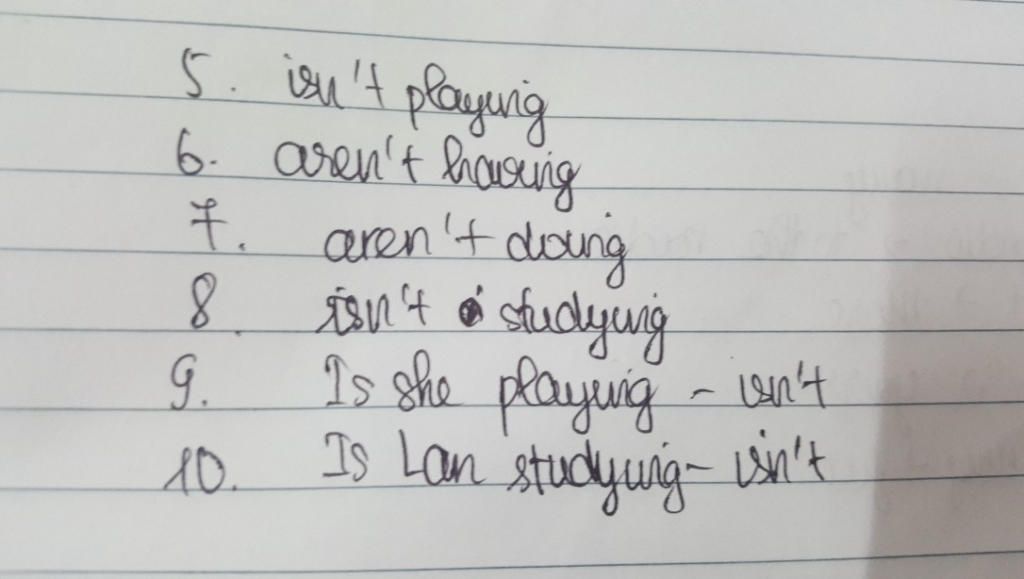 5. isn't playing
6. aren't having
7. aren't doing
8. isn't studying
9. Is she playing - isn't
10. Is Lan studying - isn't